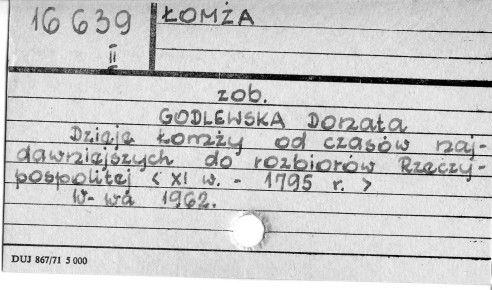 16 639
II
ŁOMŻA
zob.
GODLEWSKA Donata
Dzieje Łomży od czasów naj-
dawniejszych do rozbiorów Rzeczy-
pospolitej < XI w. - 1795 r. >
W-wa 1962.
DUJ 867/71 5 000